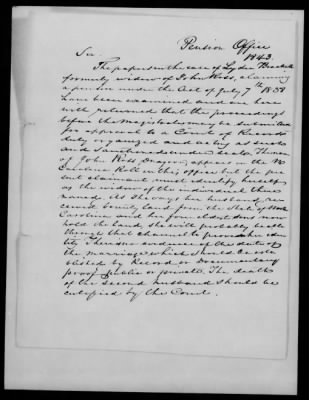 Pension Office
1843.
Sir.
The papers in the case of Lydia Brackett
formerly widow of John Ross, claiming
a pension under the Act of July 7th 1838
have been examined and are here
with returned that the proceedings
before the Magistrate may be submitted
for approval to a Court of Record
duly organized and acting as such
and sanctioned under seal. The name
of John Ross Dragoon, appears on the No
Carolina Roll in this office but the pre
sent claimant must identify herself
as the widow of the individual thus
named. As she says her husband, re
ceived bounty land from the State of North
Carolina and her four children now
hold the land, she will probably be able
through that channel to prove her iden
tity. There is no evidence of the date of
the marriage which should be esta
blished by Record or Documentary
proof public or private. The death
of the second husband should be
certified by the Court.